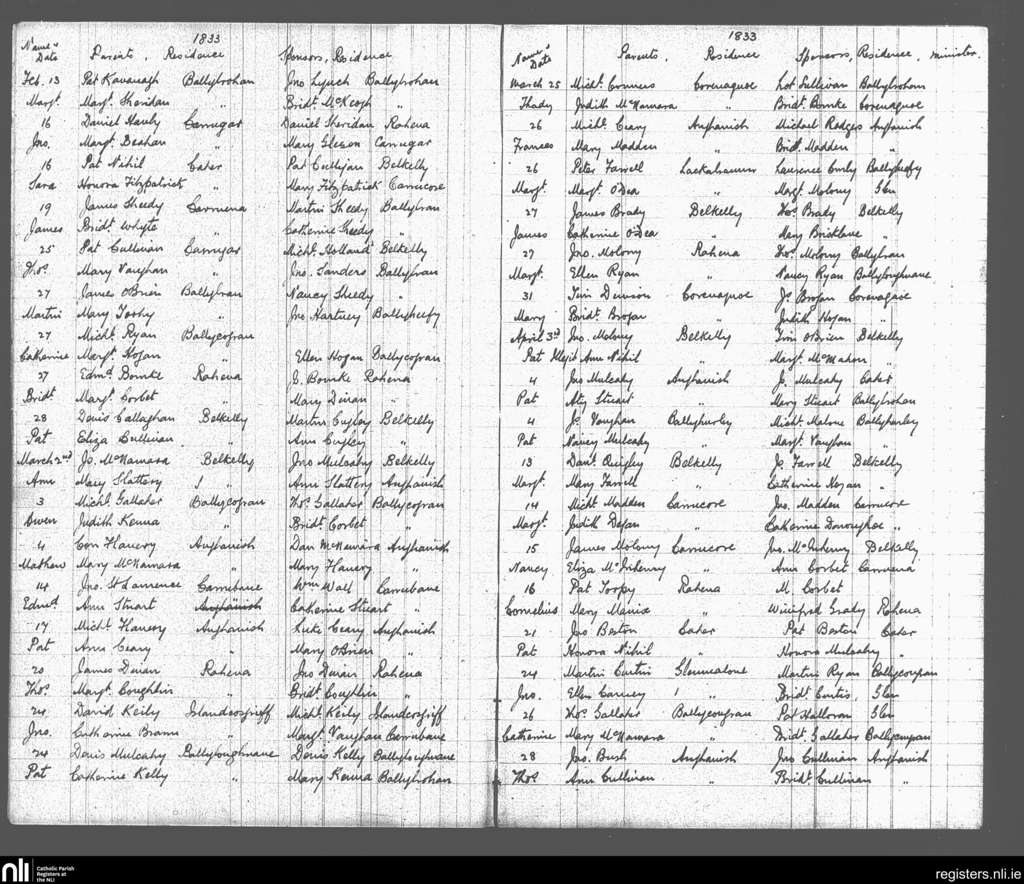 1833
Name & Date Parents, Residence Sponsors, Residence
Feb. 13 Pat Kavanagh Ballybrohan Jno Lynch Ballybrohan
Margt. Margt. Sheridan " Bridt McKeogh "
16 Daniel Hanly Carrugar Daniel Sheridan Rahena
Jno. Margt. Beahan " Mary Gleeson Carrugar
16 Pat Nihil Cater Pat Cullinan Belkelly
Sara Honora Fitzpatrick " Mary Fitzpatrick Carrucore
19 James Sheedy Carruena Martin Sheedy Ballybran
James Bridt Whyte " Catherine Sheedy "
25 Pat Cullinan Carrugar Michl. Holland Belkelly
Thos. Mary Vaughan " Jno. Sanders Ballybran
27 James OBrien Ballybran Nancy Sheedy "
Martin Mary Toohy " Jno Hartney Ballyheefy
27 Michl. Ryan Ballycogran
Catherine Margt. Hogan " Ellen Hogan Ballycogran
27 Edmd Bourke Rahena J. Bourke Rahena
Bridt Margt. Corbet " Mary Dinan "
28 Denis Callaghan Belkelly Martin Belkelly
Pat Eliza Cullinan " Ann "
March 2nd Js. McNamara Belkelly Jno Mulcahy Belkelly
Ann Mary Slattery " Ann Slattery Aughanish
3 Michl. Gallaher Ballycogran Thos. Gallaher Ballycogran
Owen Judith Kenna " Bridt Corbet "
4 Con Hanery Aughanish Dan McNamara Aughanish
Mathew Mary McNamara " Mary Hanery "
14 Jno. St Lawrence Carrubane Wm Wall Carrubane
Edmd Ann Stuart Aughanish Catherine Stuart "
17 Michl. Hanery Aughanish Luke Ceary Aughanish
Pat Ann Ceary " Mary OBrien "
20 James Dinan Rahena Jno Dinan Rahena
Thos. Margt. Coughlin " Bridt Coughlin "
24 David Keily Islandcosgriff Michl. Keily Islandcosgriff
Jno. Catharine Brann " Margt. Vaughan Carrubane
24 Denis Mulcahy Ballyloughnane Denis Kelly Ballyloughnane
Pat Catherine Kelly " Mary Kenna Ballybrohan
1833
Name & Date Parents, Residence Sponsors, Residence, Minister
March 25 Michl. Conners Corenaguoe Lot Sullivan Ballybrohan
Thady Judith McNamara " Bridt. Bourke Corenaguoe
26 Michl. Ceary Aughanish Michael Rodges Aughanish
Frances Mary Madden " Bridt. Madden "
26 Peter Farrell Lackahannin Laurence Ballyheefy
Margt. Margt. ODea " Margt. Molony Glen
27 James Brady Belkelly Thos. Brady Belkelly
James Catherine ODea " Mary Bricklane "
27 Jno. Molony Rahena Thos. Molony Ballybran
Margt. Ellen Ryan " Nancy Ryan Ballyloughnane
31 Tim Dunson Corenaguoe Js. Brogan Corenaguoe
Mary Bridt. Brogan " Judith Hogan "
April 3rd Jno. Molony Belkelly Tim OBrien Belkelly
Pat Illegit Ann Nihil " Margt. McMahon "
4 Jno Mulcahy Aughanish J. Mulcahy Cater
Pat Aty Stuart " Mary Stuart Ballybrohan
4 Js. Vaughan Ballyhurley Michl. Malone Ballyhurley
Pat Nancy Mulcahy " Margt. Vaughan "
13 Danl. Quigley Belkelly Js. Farrell Belkelly
Margt. Mary Farrell " Catherine Hogan "
14 Michl Madden Carrucore Jno. Madden Carrucore
Margt. Judith Degan " Catharine Donoughoe "
15 James Molony Carrucore Jno. McInherny Belkelly
Nancy Eliza McInherny " Ann Corbet Carruena
16 Pat Torpy Rahena M. Corbet
Cornelius Mary Manix " Winifred Grady Rahena
21 Jno Beston Cater Pat Beston Cater
Pat Honora Nihil " Honora Mulcahy "
24 Martin Curtin Glennealone Martin Ryan Ballycougran
Jno. Ellen Carney " Bridt Curtis, Glen
26 Thos. Gallaher Ballycougran Pat Halloran Glen
Catherine Mary McNamara " Bridt. Gallaher Ballycougran
28 Jno. Bush Aughanish Jno Cullinan Aughanish
Thos. Ann Cullinan " Bridt. Cullinan "
nli
Catholic Parish
Registers at
the NLI
registers.nli.ie